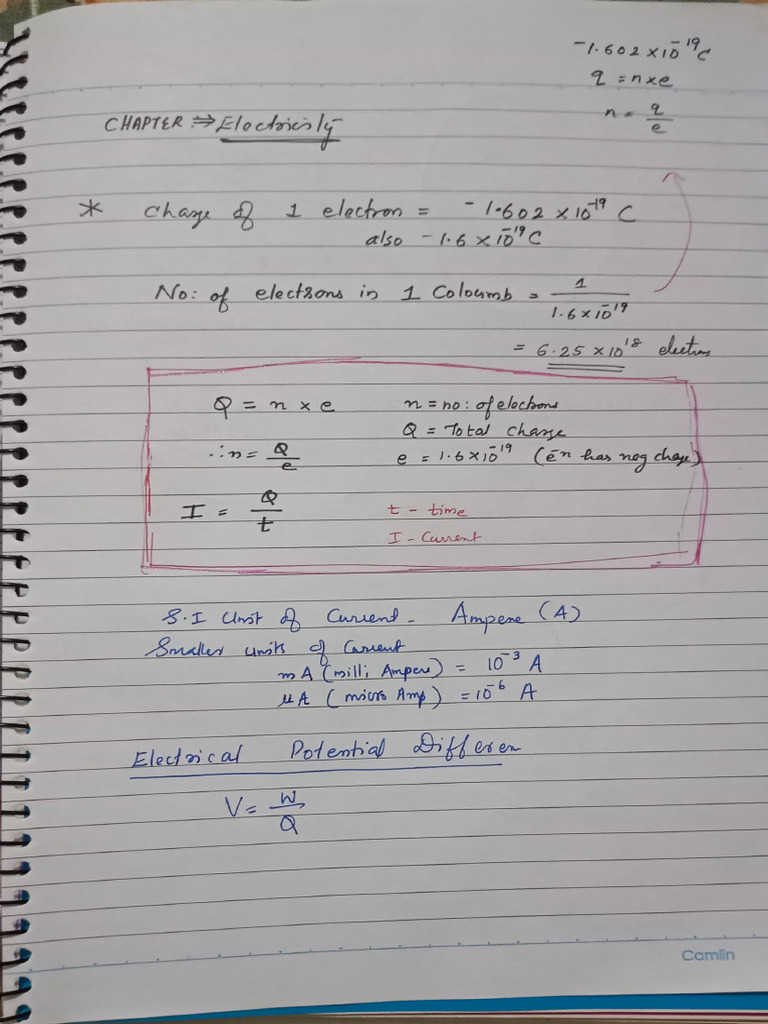 -1.602 × 10⁻¹⁹ C
q = n×e
n = q/e
CHAPTER ⇒ Electricity
* Charge of 1 electron = -1.602 × 10⁻¹⁹ C
also -1.6 × 10⁻¹⁹ C
No: of electrons in 1 Coloumb = 1/1.6 × 10⁻¹⁹
= 6.25 × 10¹⁸ electrons
Q = n × e n = no: of electrons
Q = Total charge
∴ n = Q/e e = 1.6 × 10⁻¹⁹ (ēn has neg charge)
I = Q/t t - time
I - Current
S.I Unit of Current - Ampere (A)
Smaller units of Current
mA (milli Ampere) = 10⁻³ A
μA (micro Amp) = 10⁻⁶ A
Electrical Potential Differen
V = W/Q
Camlin